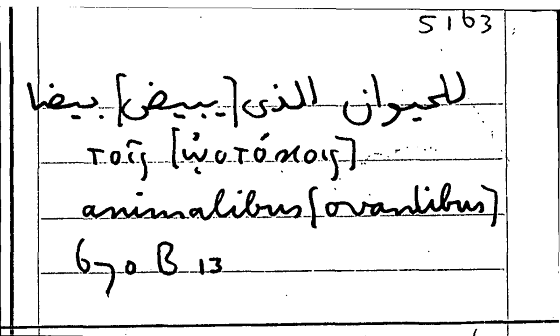 5163
للحيوان الذى [يبيض] بيضا
τοῖς [ᾠοτόκοις]
animalibus [ovantibus]
670 B 13